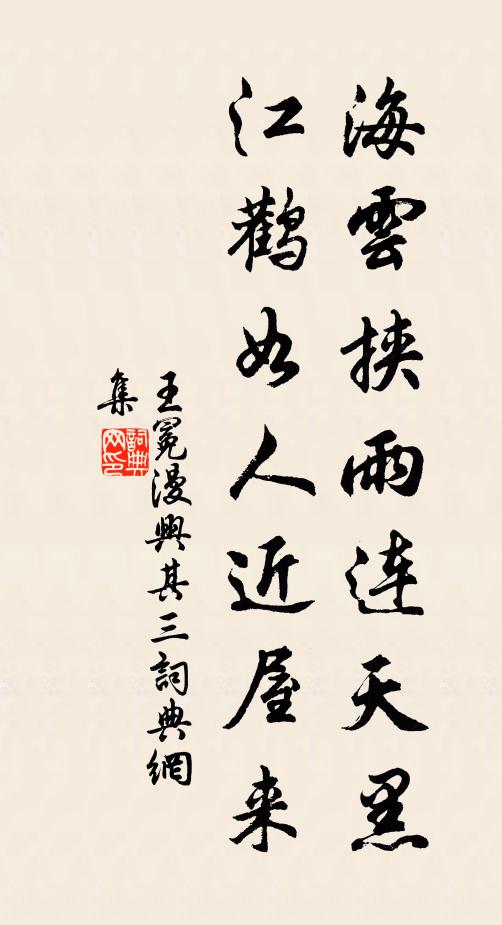 海雲挾雨連天黑
江鸛如人近屋来
王冕漫興其三詞典網
集
詞典網印